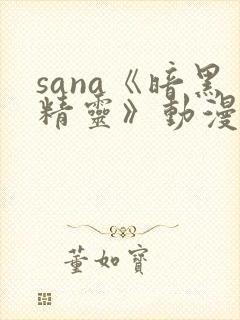 sana《暗黑
精靈》動漫
董如寶